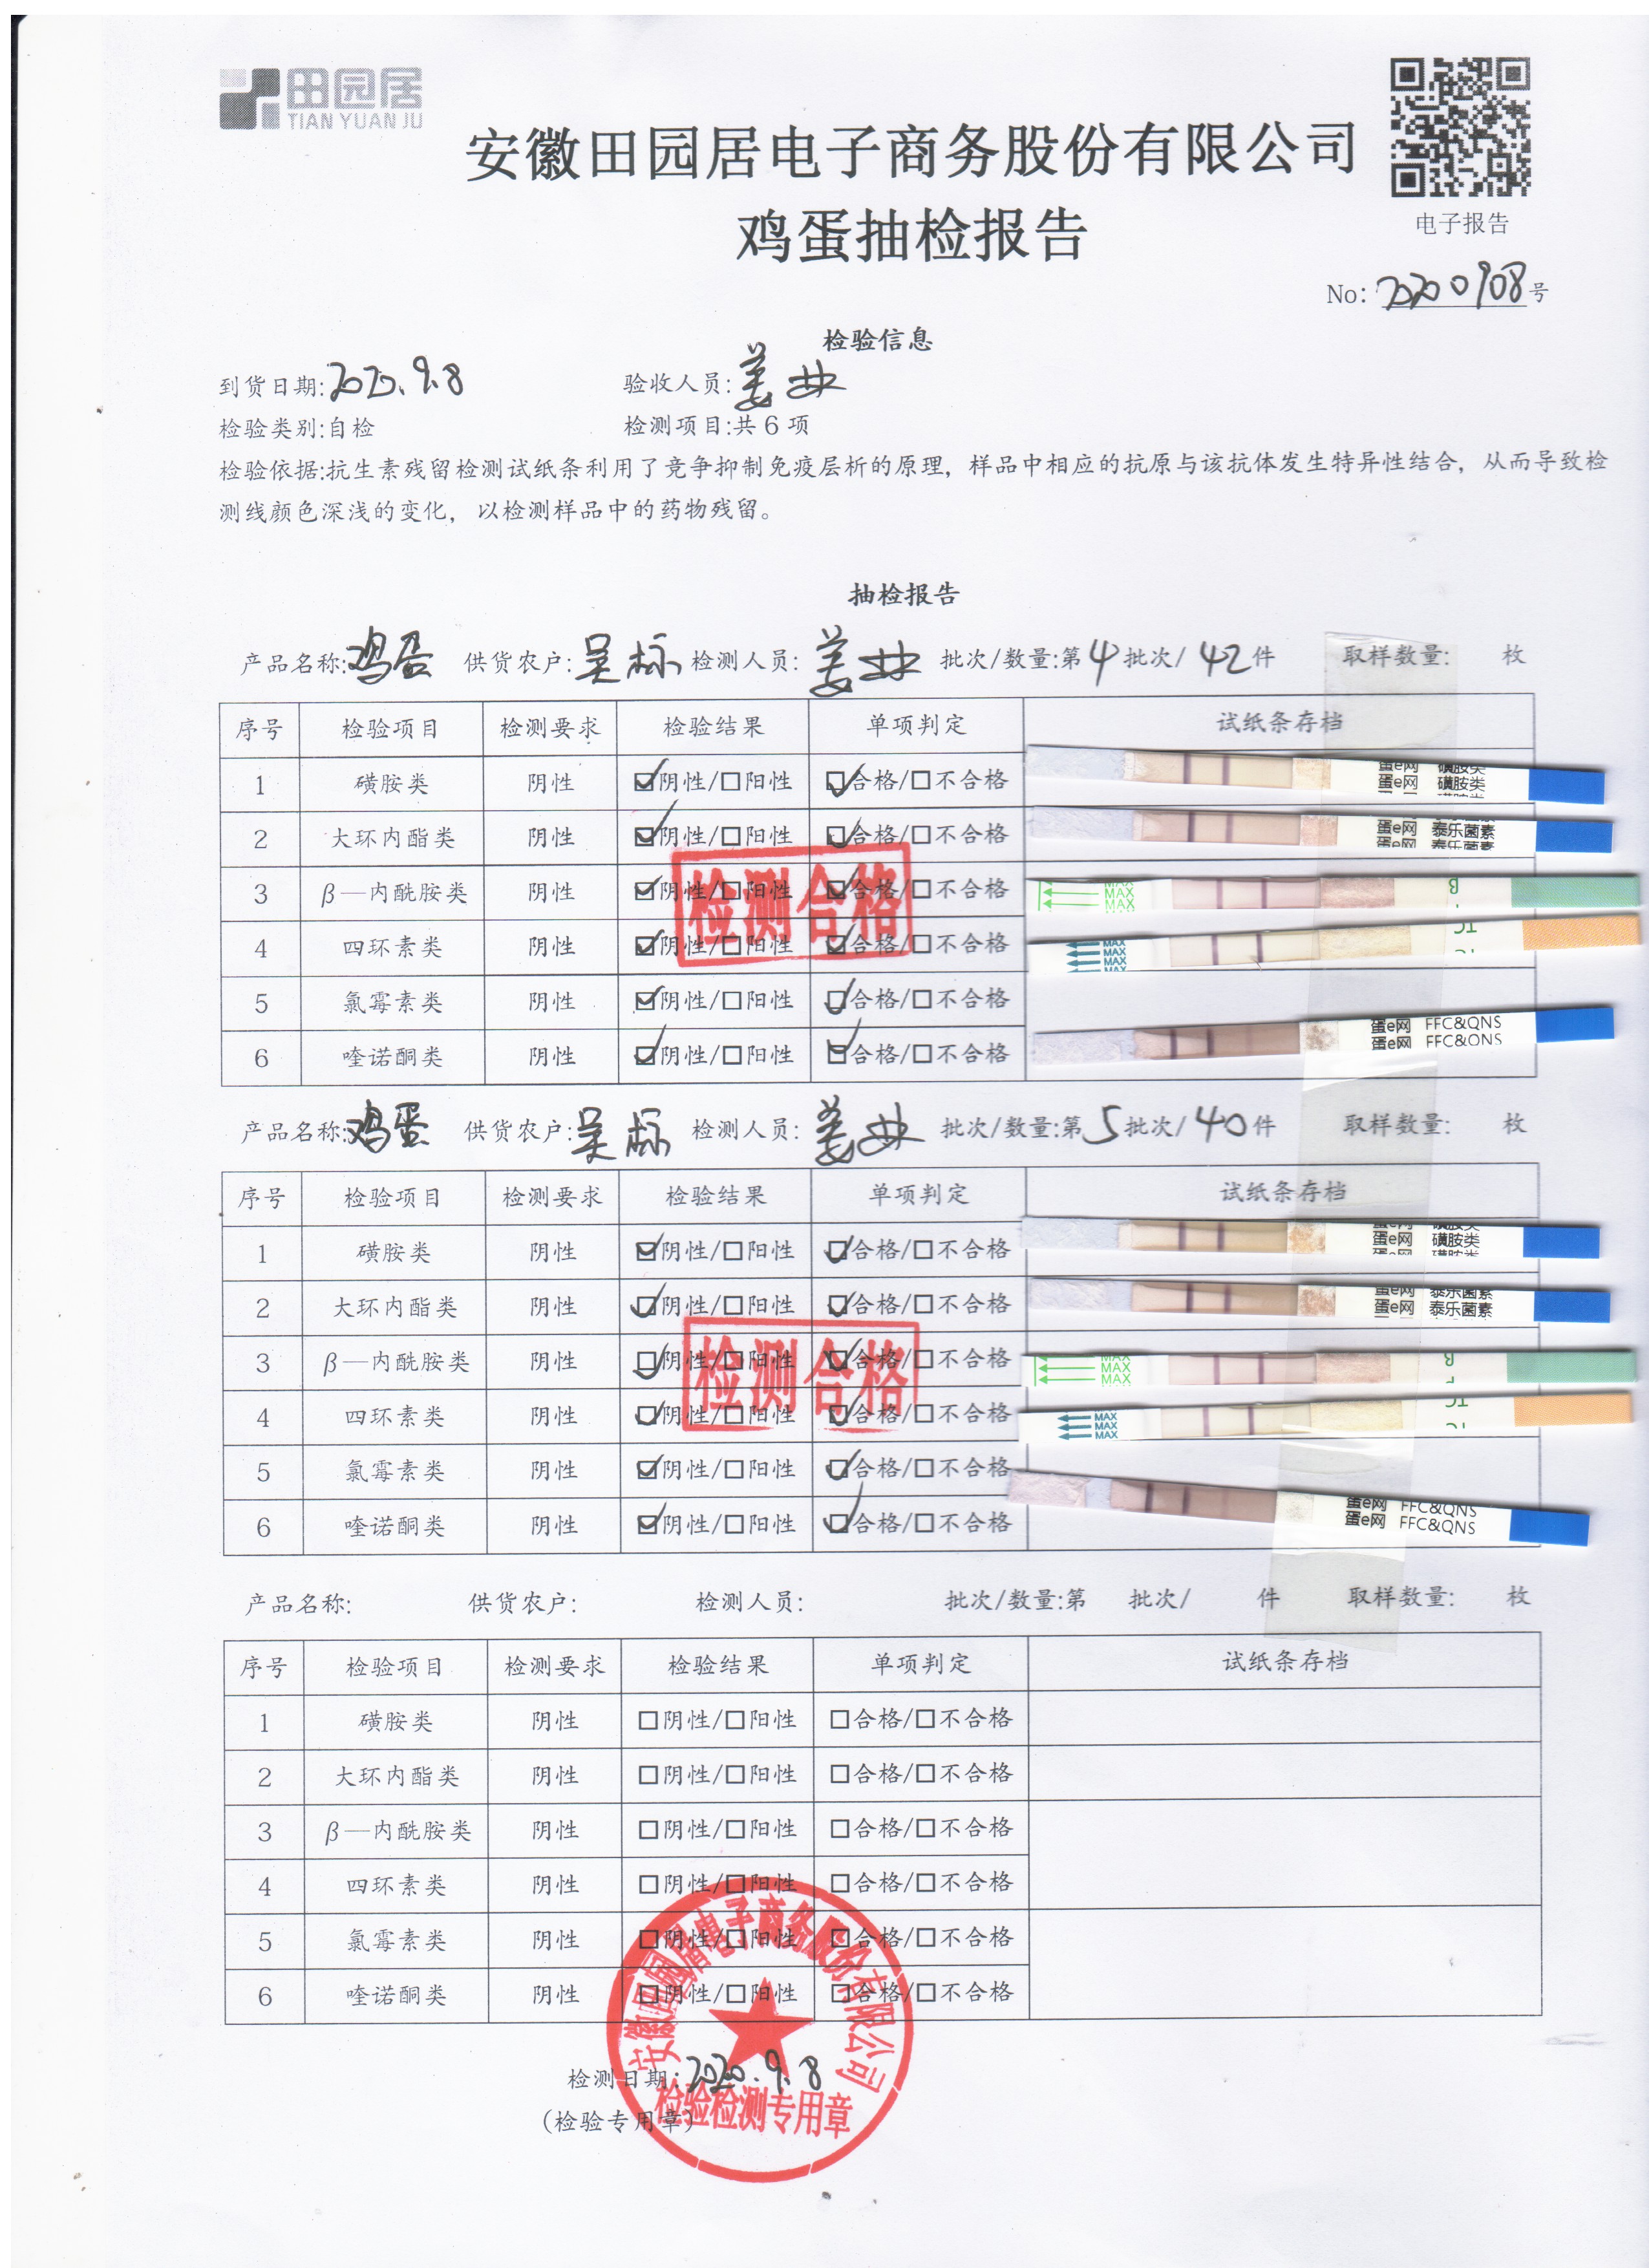 田园居
TIAN YUAN JU
安徽田园居电子商务股份有限公司
鸡蛋抽检报告
电子报告
No: 20200908号
检验信息
到货日期:2020.9.8 验收人员:姜
检验类别:自检 检测项目:共6项
检验依据:抗生素残留检测试纸条利用了竞争抑制免疫层析的原理，样品中相应的抗原与该抗体发生特异性结合，从而导致检
测线颜色深浅的变化，以检测样品中的药物残留。
抽检报告
产品名称:鸡蛋 供货农户:吴标 检测人员:姜 批次/数量:第4批次/42件 取样数量: 枚
序号 检验项目 检测要求 检验结果 单项判定 试纸条存档
1 磺胺类 阴性 ☑阴性/□阳性 ☑合格/□不合格 蛋e网 磺胺类
蛋e网 磺胺类
2 大环内酯类 阴性 ☑阴性/□阳性 ☑合格/□不合格 蛋e网 泰乐菌素
蛋e网 泰乐菌素
3 β—内酰胺类 阴性 ☑阴性/□阳性 ☑合格/□不合格 MAX
MAX
MAX
4 四环素类 阴性 ☑阴性/□阳性 ☑合格/□不合格 MAX
MAX
MAX
MAX
检测合格
5 氯霉素类 阴性 ☑阴性/□阳性 ☑合格/□不合格
6 喹诺酮类 阴性 ☑阴性/□阳性 ☑合格/□不合格 蛋e网 FFC&QNS
蛋e网 FFC&QNS
产品名称:鸡蛋 供货农户:吴标 检测人员:姜 批次/数量:第5批次/40件 取样数量: 枚
序号 检验项目 检测要求 检验结果 单项判定 试纸条存档
1 磺胺类 阴性 ☑阴性/□阳性 ☑合格/□不合格 蛋e网 磺胺类
蛋e网 磺胺类
2 大环内酯类 阴性 ☑阴性/□阳性 ☑合格/□不合格 蛋e网 泰乐菌素
蛋e网 泰乐菌素
3 β—内酰胺类 阴性 ☑阴性/□阳性 ☑合格/□不合格 MAX
MAX
MAX
4 四环素类 阴性 ☑阴性/□阳性 ☑合格/□不合格 MAX
MAX
MAX
检测合格
5 氯霉素类 阴性 ☑阴性/□阳性 ☑合格/□不合格
6 喹诺酮类 阴性 ☑阴性/□阳性 ☑合格/□不合格 蛋e网 FFC&QNS
蛋e网 FFC&QNS
产品名称: 供货农户: 检测人员: 批次/数量:第 批次/ 件 取样数量: 枚
序号 检验项目 检测要求 检验结果 单项判定 试纸条存档
1 磺胺类 阴性 □阴性/□阳性 □合格/□不合格
2 大环内酯类 阴性 □阴性/□阳性 □合格/□不合格
3 β—内酰胺类 阴性 □阴性/□阳性 □合格/□不合格
4 四环素类 阴性 □阴性/□阳性 □合格/□不合格
5 氯霉素类 阴性 □阴性/□阳性 □合格/□不合格
6 喹诺酮类 阴性 □阴性/□阳性 □合格/□不合格
安徽田园居电子商务股份有限公司
检测日期:2020.9.8
检验检测专用章
(检验专用章)